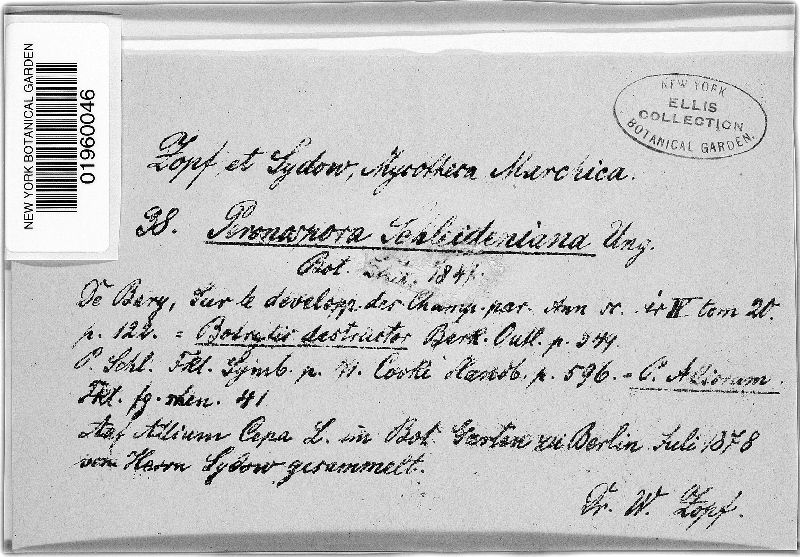 NEW YORK BOTANICAL GARDEN
01960046
NEW YORK
ELLIS
COLLECTION
BOTANICAL GARDEN.
Zopf, et Sydow, Mycotheca Marchica.
38. Peronospora Schleideniana Ung.
Bot. 1847.
De Bary, Sur le developp. des Champ. par. Ann sc. IV tom 20.
p. 122. = Botrytis destructor Berk. Outl. p. 349.
P. Schl. Fkl. Symb. p. Cooke Handb. p. 596. = P. Alliorum
Fkl. fg. rhen. 41
Auf Allium Cepa L. im Bot. Garten zu Berlin Juli 1878
von Herrn Sydow gesammelt.
Dr. W. Zopf.